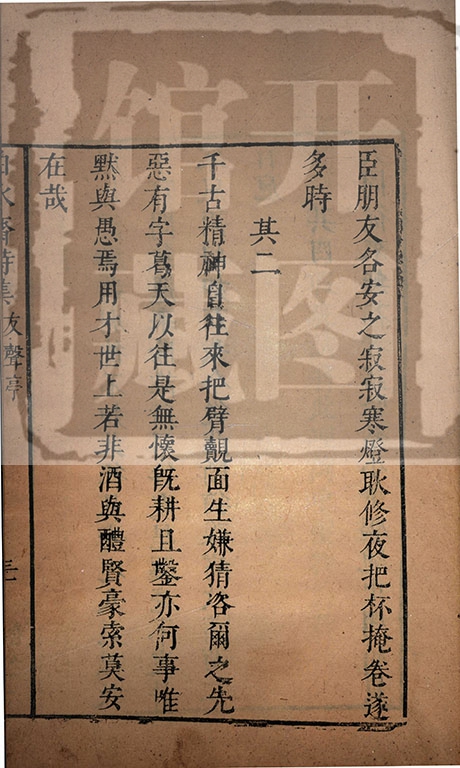 臣朋友各安之寂寂寒燈耿修夜把杯掩卷遂
多時
其二
千古精神自往來把臂覿面生嫌猜咨爾之先
惡有字葛天以往是無懷既耕且鑿亦何事唯
默與愚焉用才世上若非酒與醴賢豪索莫安
在哉
白水齋詩集 友聲亭
開圖
館藏